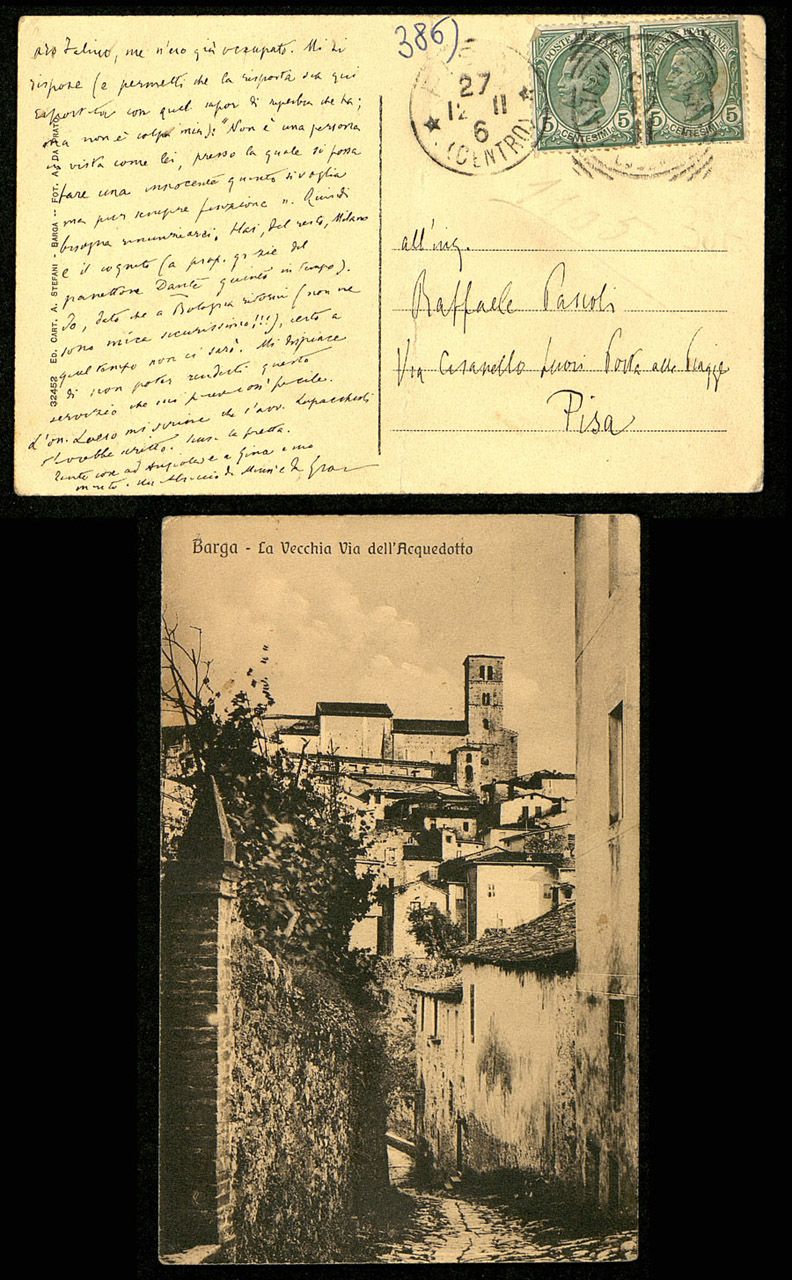 386)
27
12 11
6
(CENTRO)
POSTE ITALIANE
5 CENTESIMI 5
POSTE ITALIANE
5 CENTESIMI 5
me n'ero già occupato. Mi si
rispose (e permetti che la risposta sia qui
con quel sapor di superbia che ha;
ma non è colpa mia): "Non è una persona
in vista come lei, presso la quale si possa
fare una innocente quanto si voglia
ma pur sempre funzione". Quindi
bisogna rinunziarci. Hai, del resto, Milano
e il cognato (a prop. grazie del
panettone Dante quanto in tempo).
Io, dato che a Bologna ritorni (non ne
sono mica sicurissimo!!!), certo a
quel tempo non ci sarò. Mi dispiace
di non poter renderti questo
servizio che mi pareva così facile.
L'on. mi scrive che l'avv.
dovrebbe scritto. Scusa la fretta.
Tante cose ad e a Gina e a
Un abbraccio di
32452 ED. CART. A. STEFANI - BARGA -- FOT. A. DA PRATO
all'ing.
Raffaele Pascoli
Via Cisanello fuori Porta alle Piagge
Pisa
Barga - La Vecchia Via dell'Acquedotto